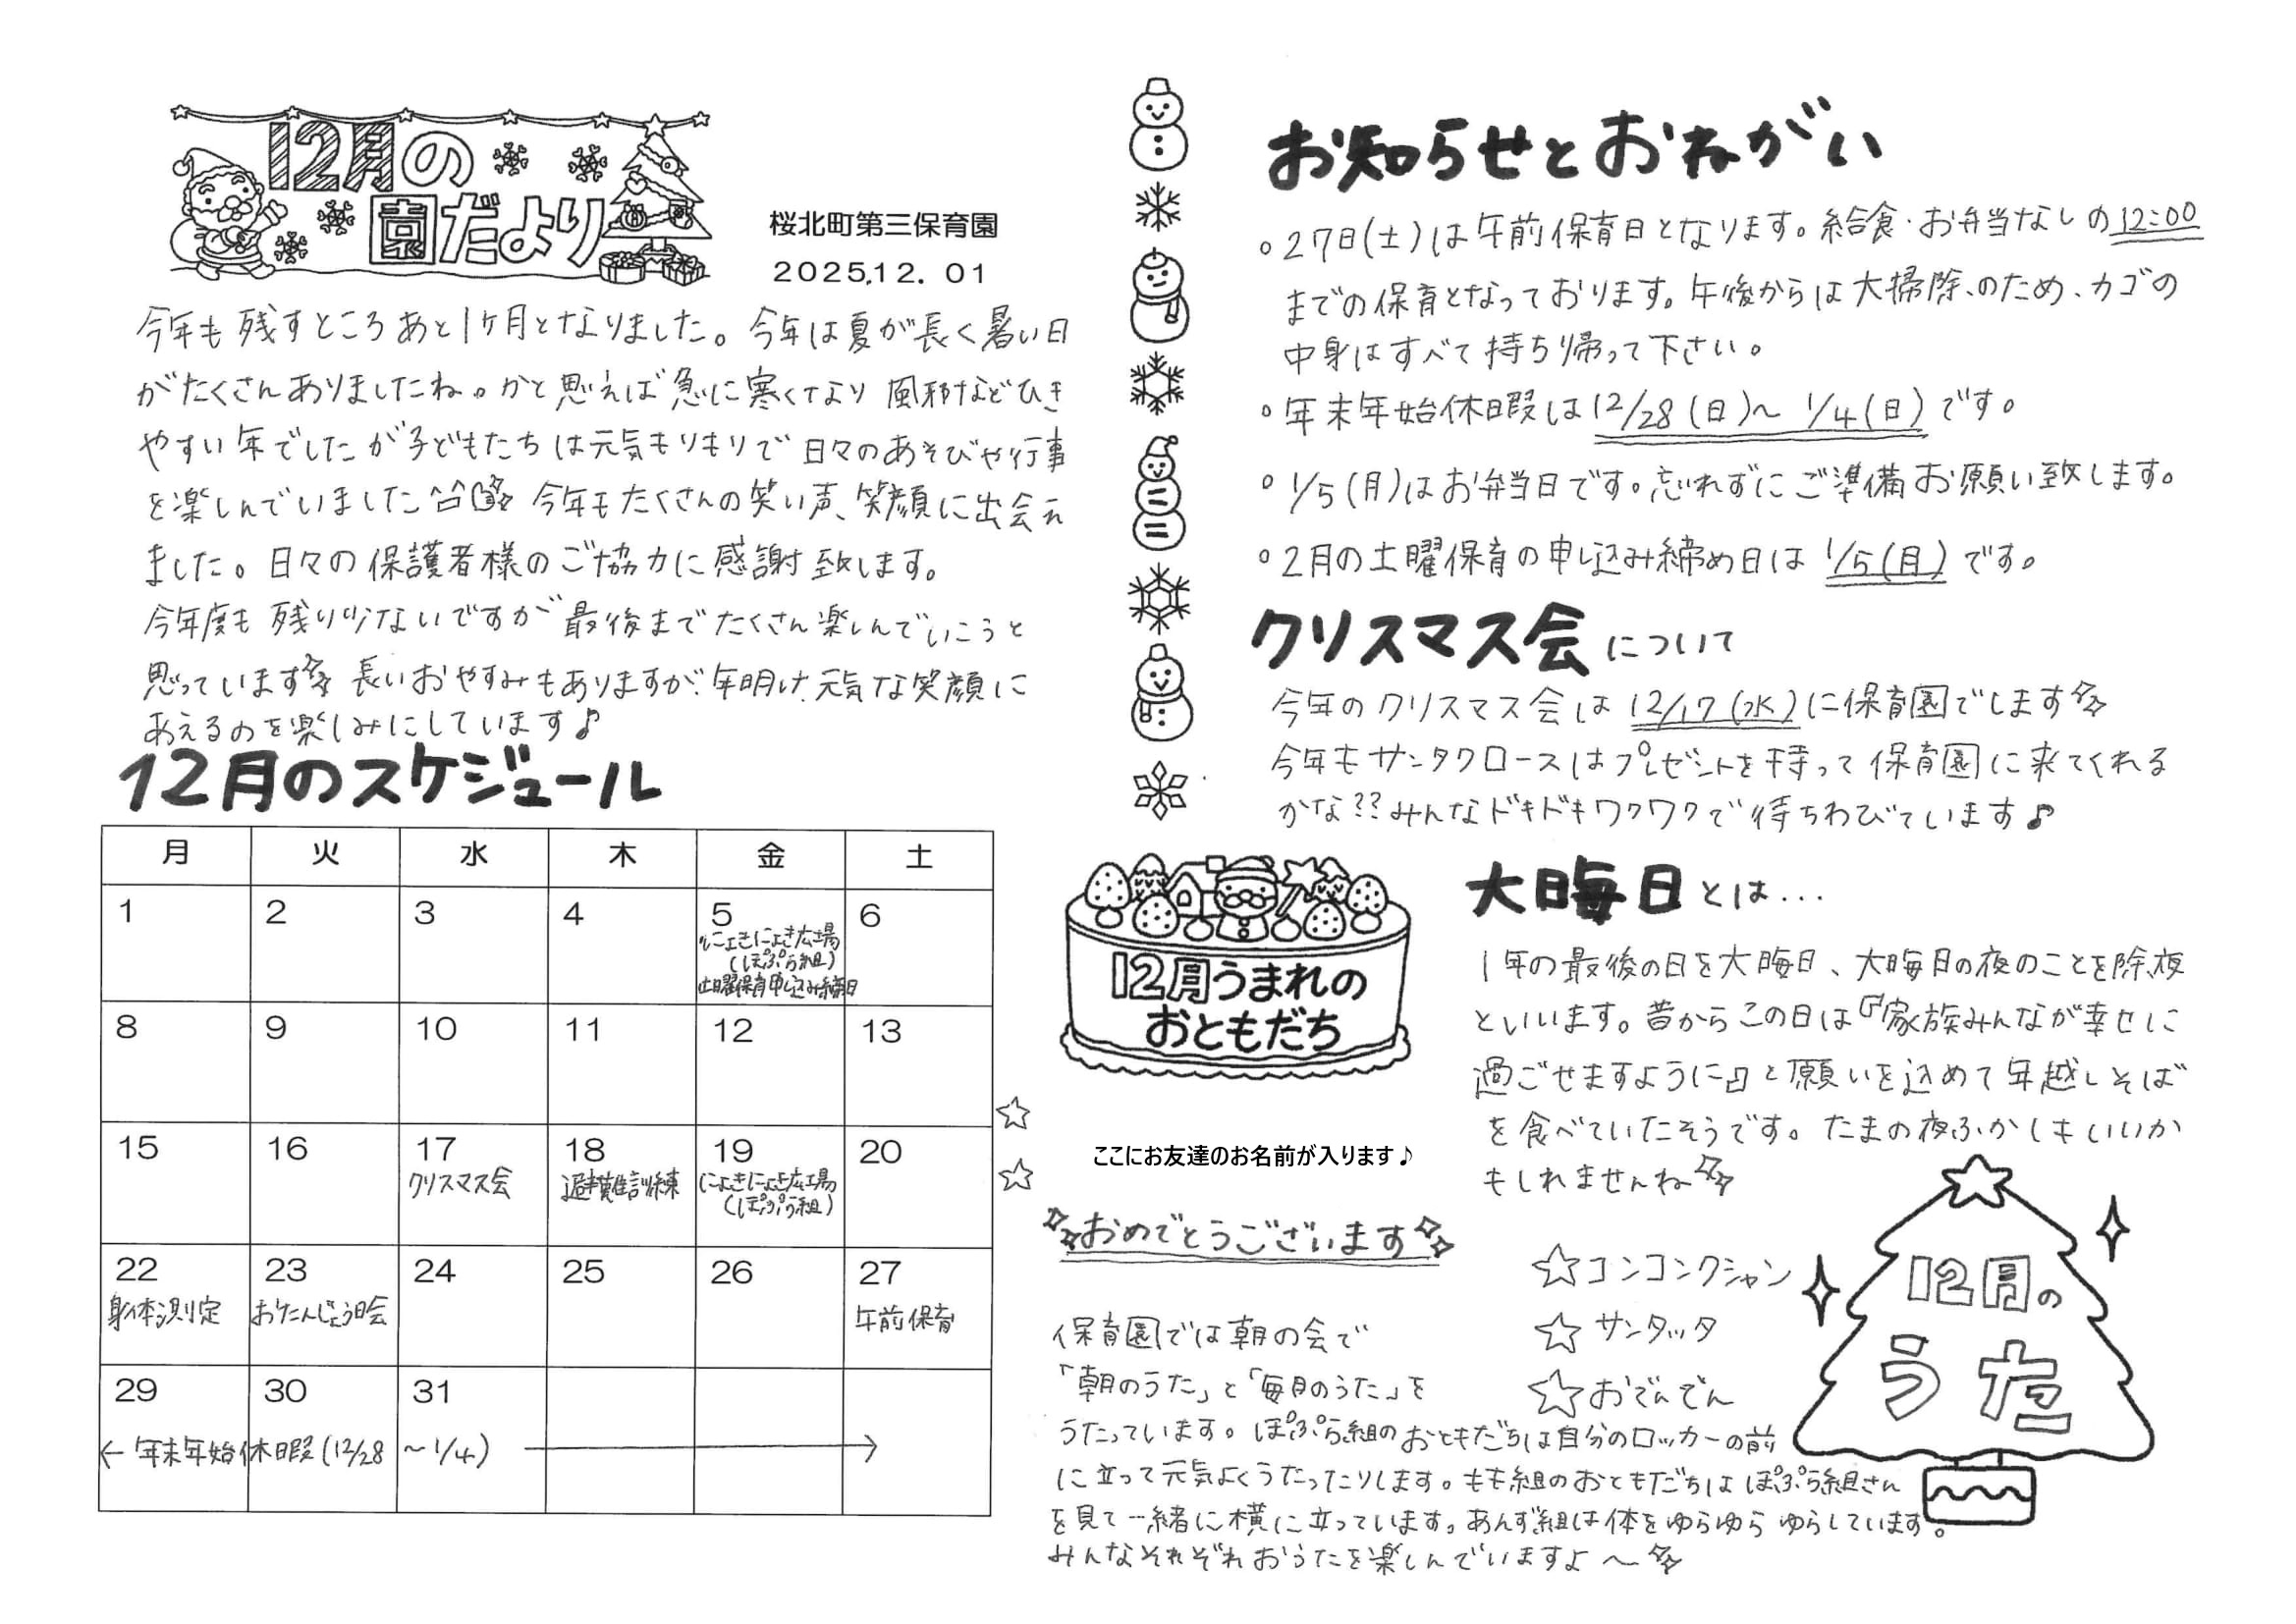 12月の
園だより
桜北町第三保育園
2025.12.01
今年も残すところあと1ヶ月となりました。今年は夏が長く暑い日
がたくさんありましたね。かと思えば急に寒くなり風邪などひき
やすい年でしたが子どもたちは元気もりもりで日々のあそびや行事
を楽しんでいました 今年もたくさんの笑い声、笑顔に出会え
ました。日々の保護者様のご協力に感謝致します。
今年度も残り少ないですが最後までたくさん楽しんでいこうと
思っています☆長いおやすみもありますが、年明け、元気な笑顔に
あえるのを楽しみにしています♪
12月のスケジュール
月 火 水 木 金 土
1 2 3 4 5 6
にょきにょき広場
(ぽぷら組)
土曜保育申し込み締め日
8 9 10 11 12 13
15 16 17 18 19 20
クリスマス会 避難訓練 にょきにょき広場
(ぽぷら組)
22 23 24 25 26 27
身体測定 おたんじょう日会 午前保育
29 30 31
← 年末年始休暇(12/28 ～1/4) →
お知らせとおねがい
○27日(土)は午前保育日となります。給食・お弁当なしの12:00
までの保育となっております。午後からは大掃除のため、カゴの
中身はすべて持ち帰って下さい。
○年末年始休暇は12/28(日)～1/4(日)です。
○1/5(月)はお弁当日です。忘れずにご準備お願い致します。
○2月の土曜保育の申し込み締め日は1/5(月)です。
クリスマス会について
今年のクリスマス会は12/17(水)に保育園でします☆
今年もサンタクロースはプレゼントを持って保育園に来てくれる
かな??みんなドキドキワクワクで待ちわびています♪
12月うまれの
おともだち
ここにお友達のお名前が入ります♪
おめでとうございます
大晦日とは...
1年の最後の日を大晦日、大晦日の夜のことを除夜
といいます。昔からこの日は『家族みんなが幸せに
過ごせますように』と願いを込めて年越しそば
を食べていたそうです。たまの夜ふかしもいいか
もしれませんね☆
12月の
うた
☆コンコンクシャン
☆サンタッタ
☆おでんでん
保育園では朝の会で
「朝のうた」と「毎月のうた」を
うたっています。ぽぷら組のおともだちは自分のロッカーの前
に立って元気よくうたったりします。もも組のおともだちはぽぷら組さん
を見て一緒に横に立っています。あんず組は体をゆらゆらゆらしています。
みんなそれぞれおうたを楽しんでいますよ～☆